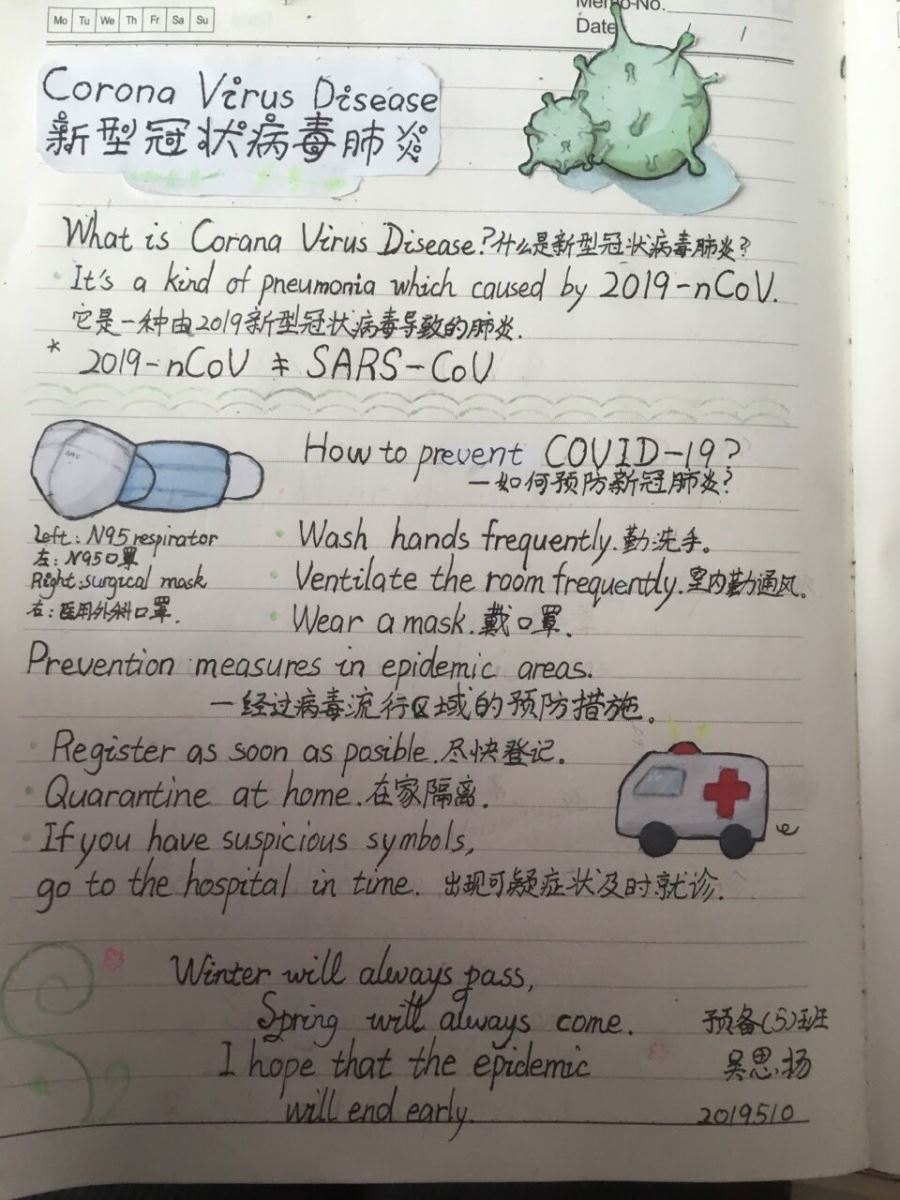 Mo Tu We Th Fr Sa Su
Memo No.
Date / 
Corona Virus Disease
新型冠状病毒肺炎
What is Corana Virus Disease?什么是新型冠状病毒肺炎?
It's a kind of pneumonia which caused by 2019-nCoV.
它是一种由2019新型冠状病毒导致的肺炎.
* 2019-nCoV ≠ SARS-CoV
How to prevent COVID-19?
—如何预防新冠肺炎?
Left: N95 respirator
左: N95口罩
Right: surgical mask
右: 医用外科口罩.
Wash hands frequently.勤洗手。
Ventilate the room frequently.室内勤通风。
Wear a mask.戴口罩.
Prevention measures in epidemic areas.
—经过病毒流行区域的预防措施。
Register as soon as posible.尽快登记。
Quarantine at home.在家隔离.
If you have suspicious symbols,
go to the hospital in time. 出现可疑症状及时就诊.
Winter will always pass,
Spring will always come.
I hope that the epidemic
will end early.
预备(5)班
吴思扬
2019510